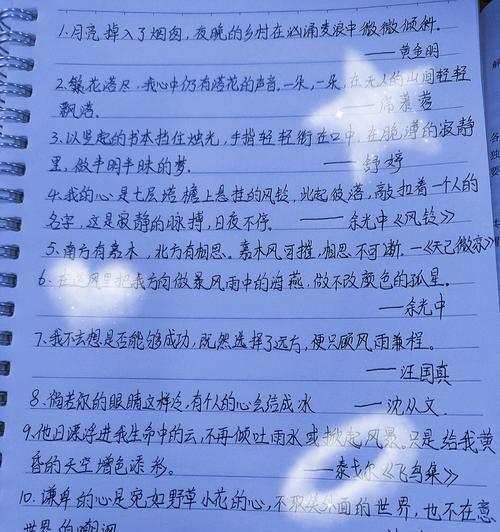 1.月亮掉入了烟囱，夜晚的乡村在汹涌麦浪中微微倾斜。
——黄鱼明
2.繁花落尽，我心中仍有落花的声音。一朵，一朵，在无人的山间轻轻
飘落。——席慕蓉
3.以竖起的书本挡住烛光，手指轻轻衔在口中，在脆薄的寂静
里，做半明半昧的梦。——舒婷
4.我的心是七层塔檐上悬挂的风铃，此起彼落，敲扣着一个人的
名字，这是寂静的脉搏，日夜不停。——余光中《风铃》
5.南方有嘉木，北方有相思。嘉木风可摧，相思不可断。—《天已微凉》
6.在逆风里把我方向做暴风雨中的海燕，做不改颜色的孤星。
——余光中
7.我不去想是否能够成功，既然选择了远方，便只顾风雨兼程。
——汪国真
8.倘若你的眼睛这样冷，有个人的心会结成冰——沈从文
9.他日漂浮进我生命中的云，不再倾吐雨水或掀起风暴。只是给我黄
昏的天空增色添彩。——泰戈尔《飞鸟集》
10.谦卑的心是宛如野草小花的心，不取笑外面的世界，也不在意
世界的嘲讽